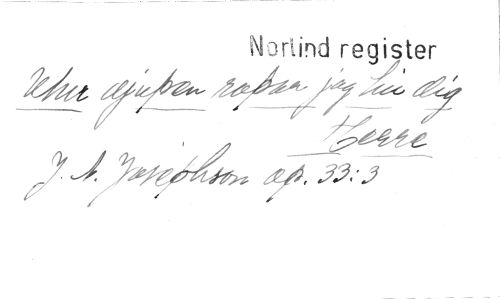 Nortind register
Utur djupen ropar jag till dig
Herre
J. A. Josephson op. 33:3